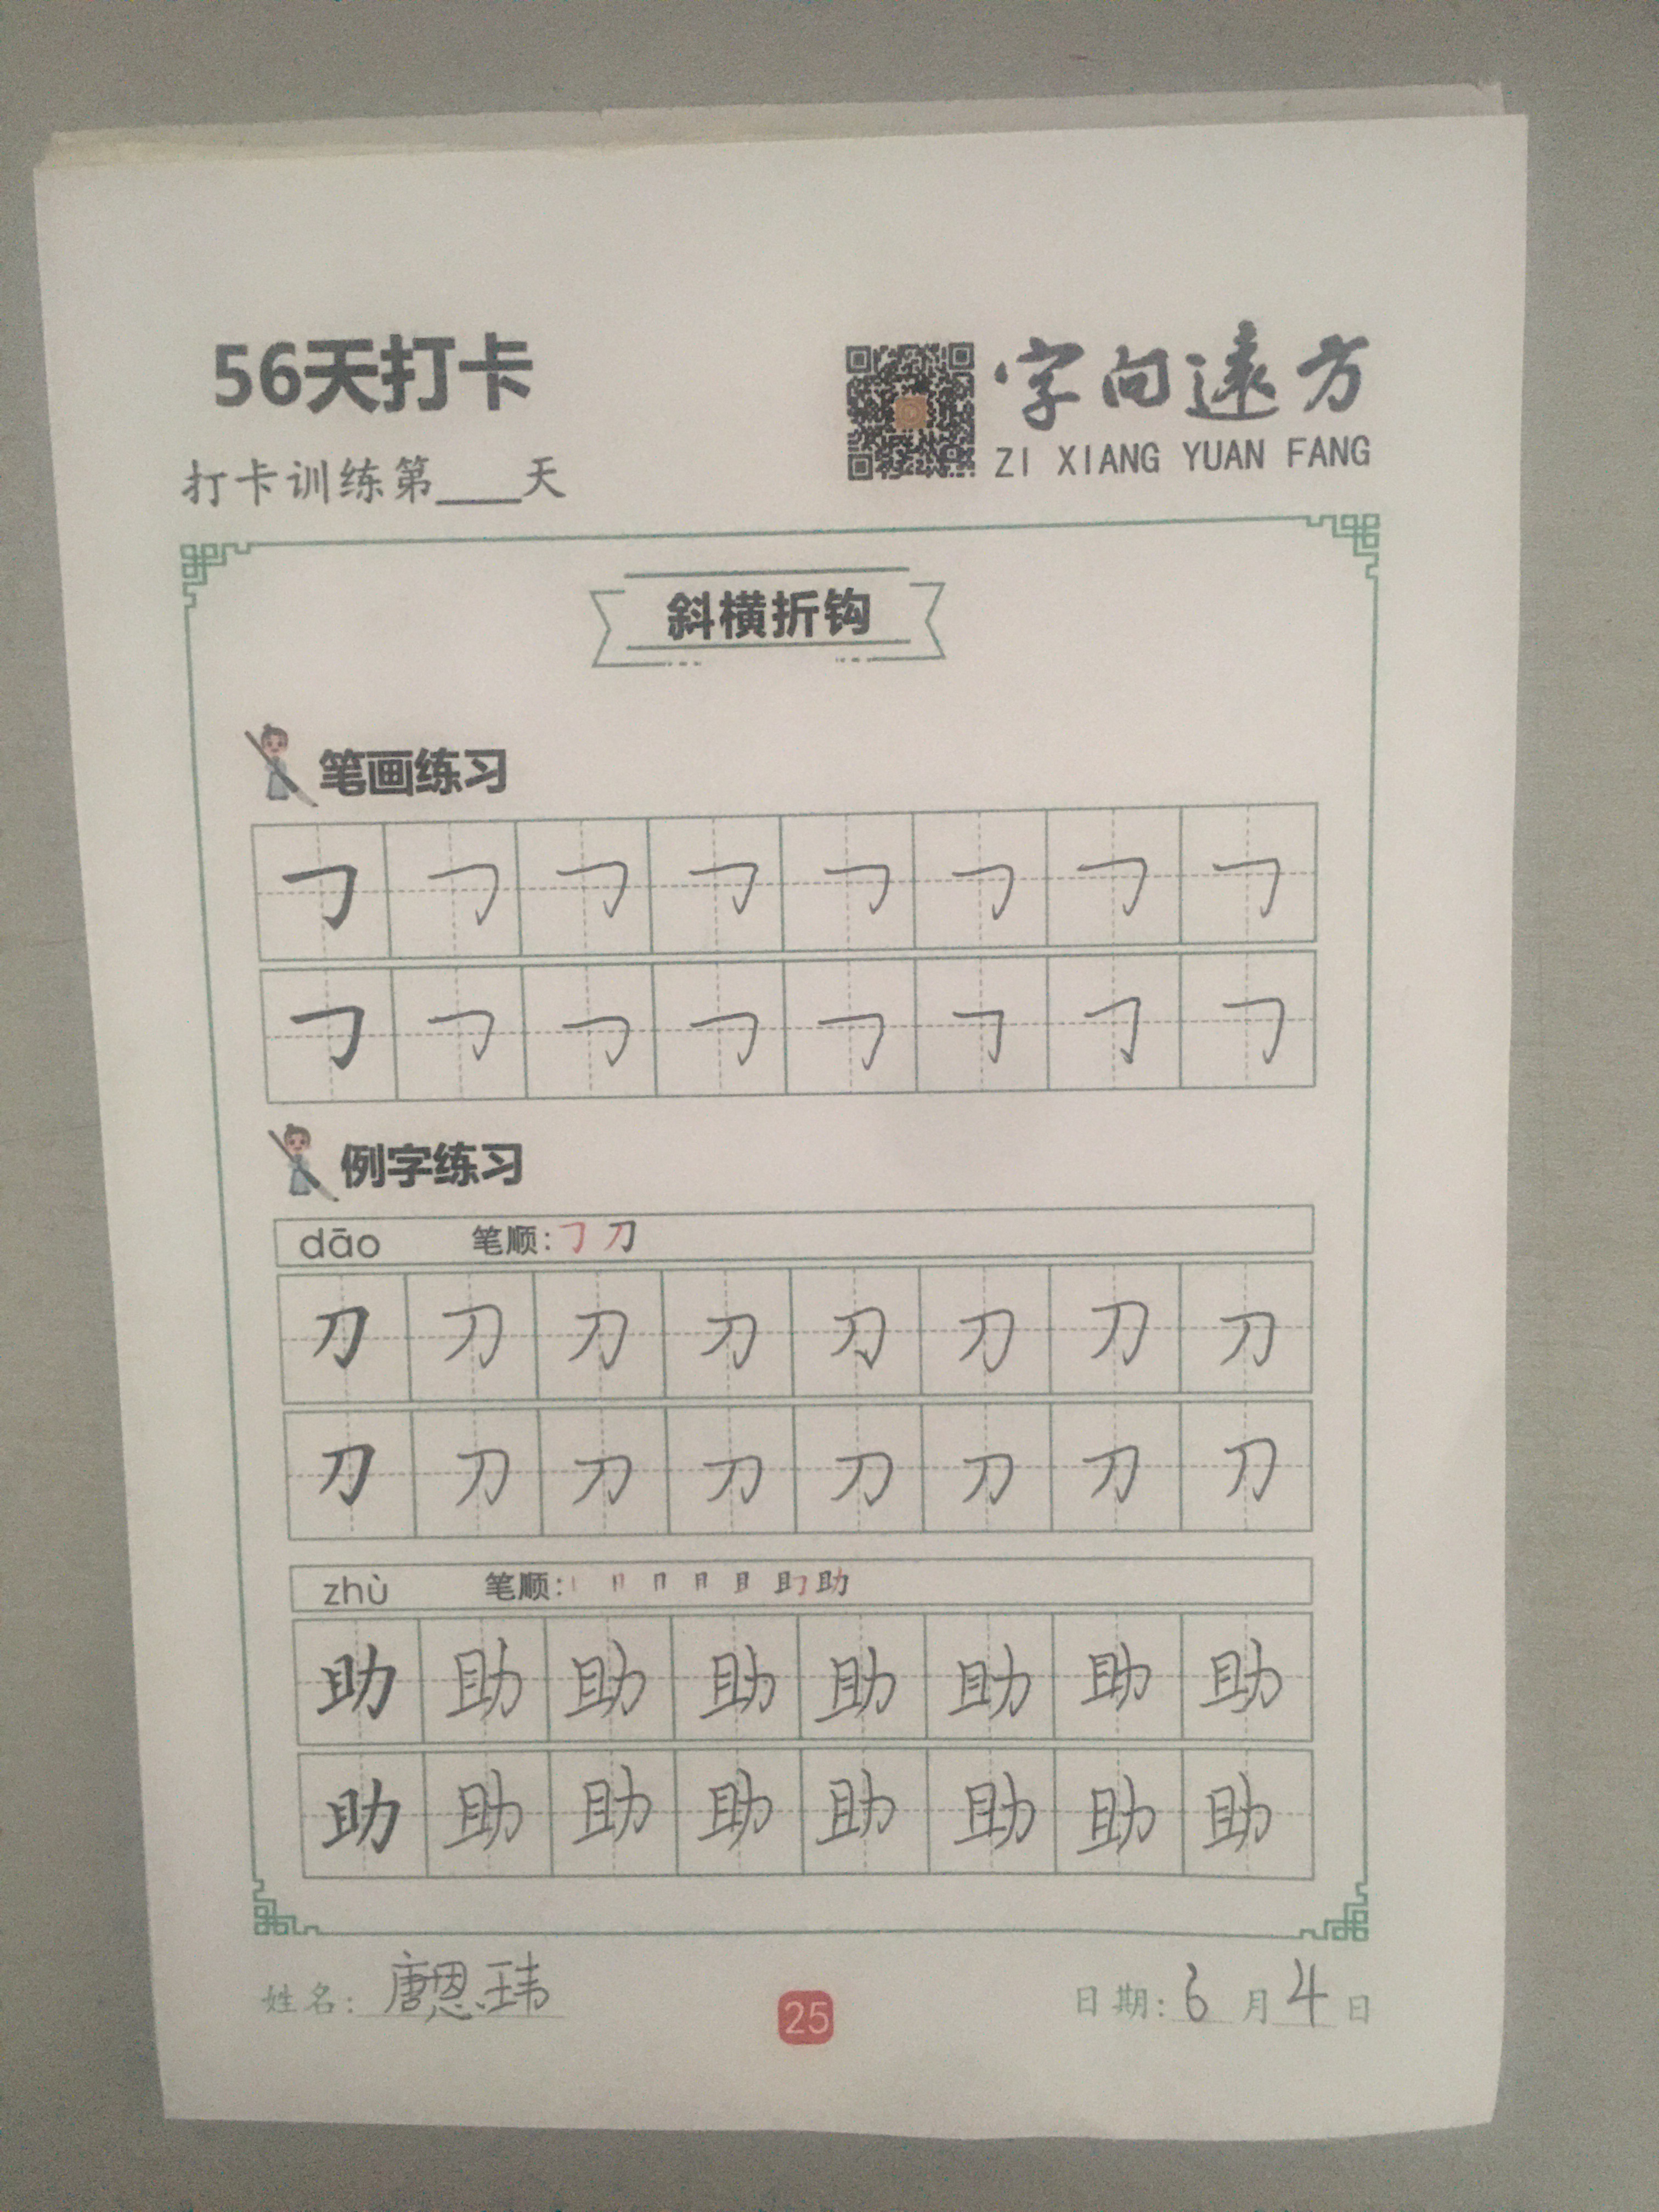 56天打卡
字向遠方
ZI XIANG YUAN FANG
打卡训练第____天
斜横折钩
笔画练习
㇆ ㇆ ㇆ ㇆ ㇆ ㇆ ㇆ ㇆
㇆ ㇆ ㇆ ㇆ ㇆ ㇆ ㇆ ㇆
例字练习
dāo 笔顺:㇆ 刀
刀 刀 刀 刀 刀 刀 刀 刀
刀 刀 刀 刀 刀 刀 刀 刀
zhù 笔顺:丨 冂 冂 月 且 助 助
助 助 助 助 助 助 助 助
助 助 助 助 助 助 助 助
姓名: 唐恩玮 25 日期: 6 月 4 日